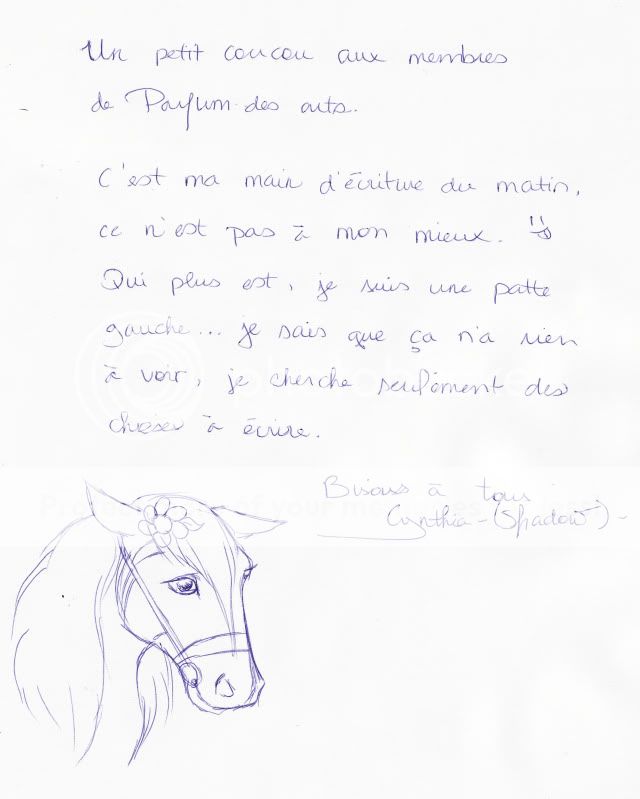 Un petit coucou aux membres
de Parfum des arts.
C'est ma main d'écriture du matin,
ce n'est pas à mon mieux.
Qui plus est, je suis une patte
gauche... je sais que ça n'a rien
à voir, je cherche seulement des
choses à écrire.
Bisous à tous
Cynthia - (Shadow) -